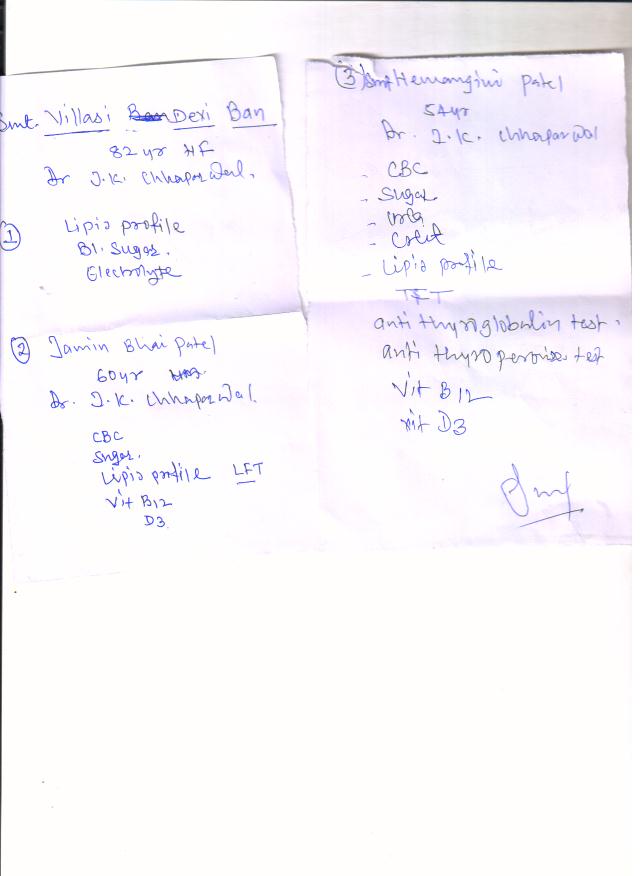 Smt. Villasi Devi Ban
82 yr HF
Dr J.K. Chhaparwal.
①
Lipid profile
Bl. Sugar.
Electrolyte
② Jamin Bhai Patel
60 yr
Dr. J.K. Chhaparwal.
CBC
Sugar.
Lipid profile LFT
Vit B12
D3
③ Smt Hemangini Patel
54 yr
Dr. J.K. Chhaparwal
- CBC
- Sugar
- Urea
- Creat
- Lipid profile
TFT
anti thyroglobulin test.
anti thyro test
Vit B12
vit D3